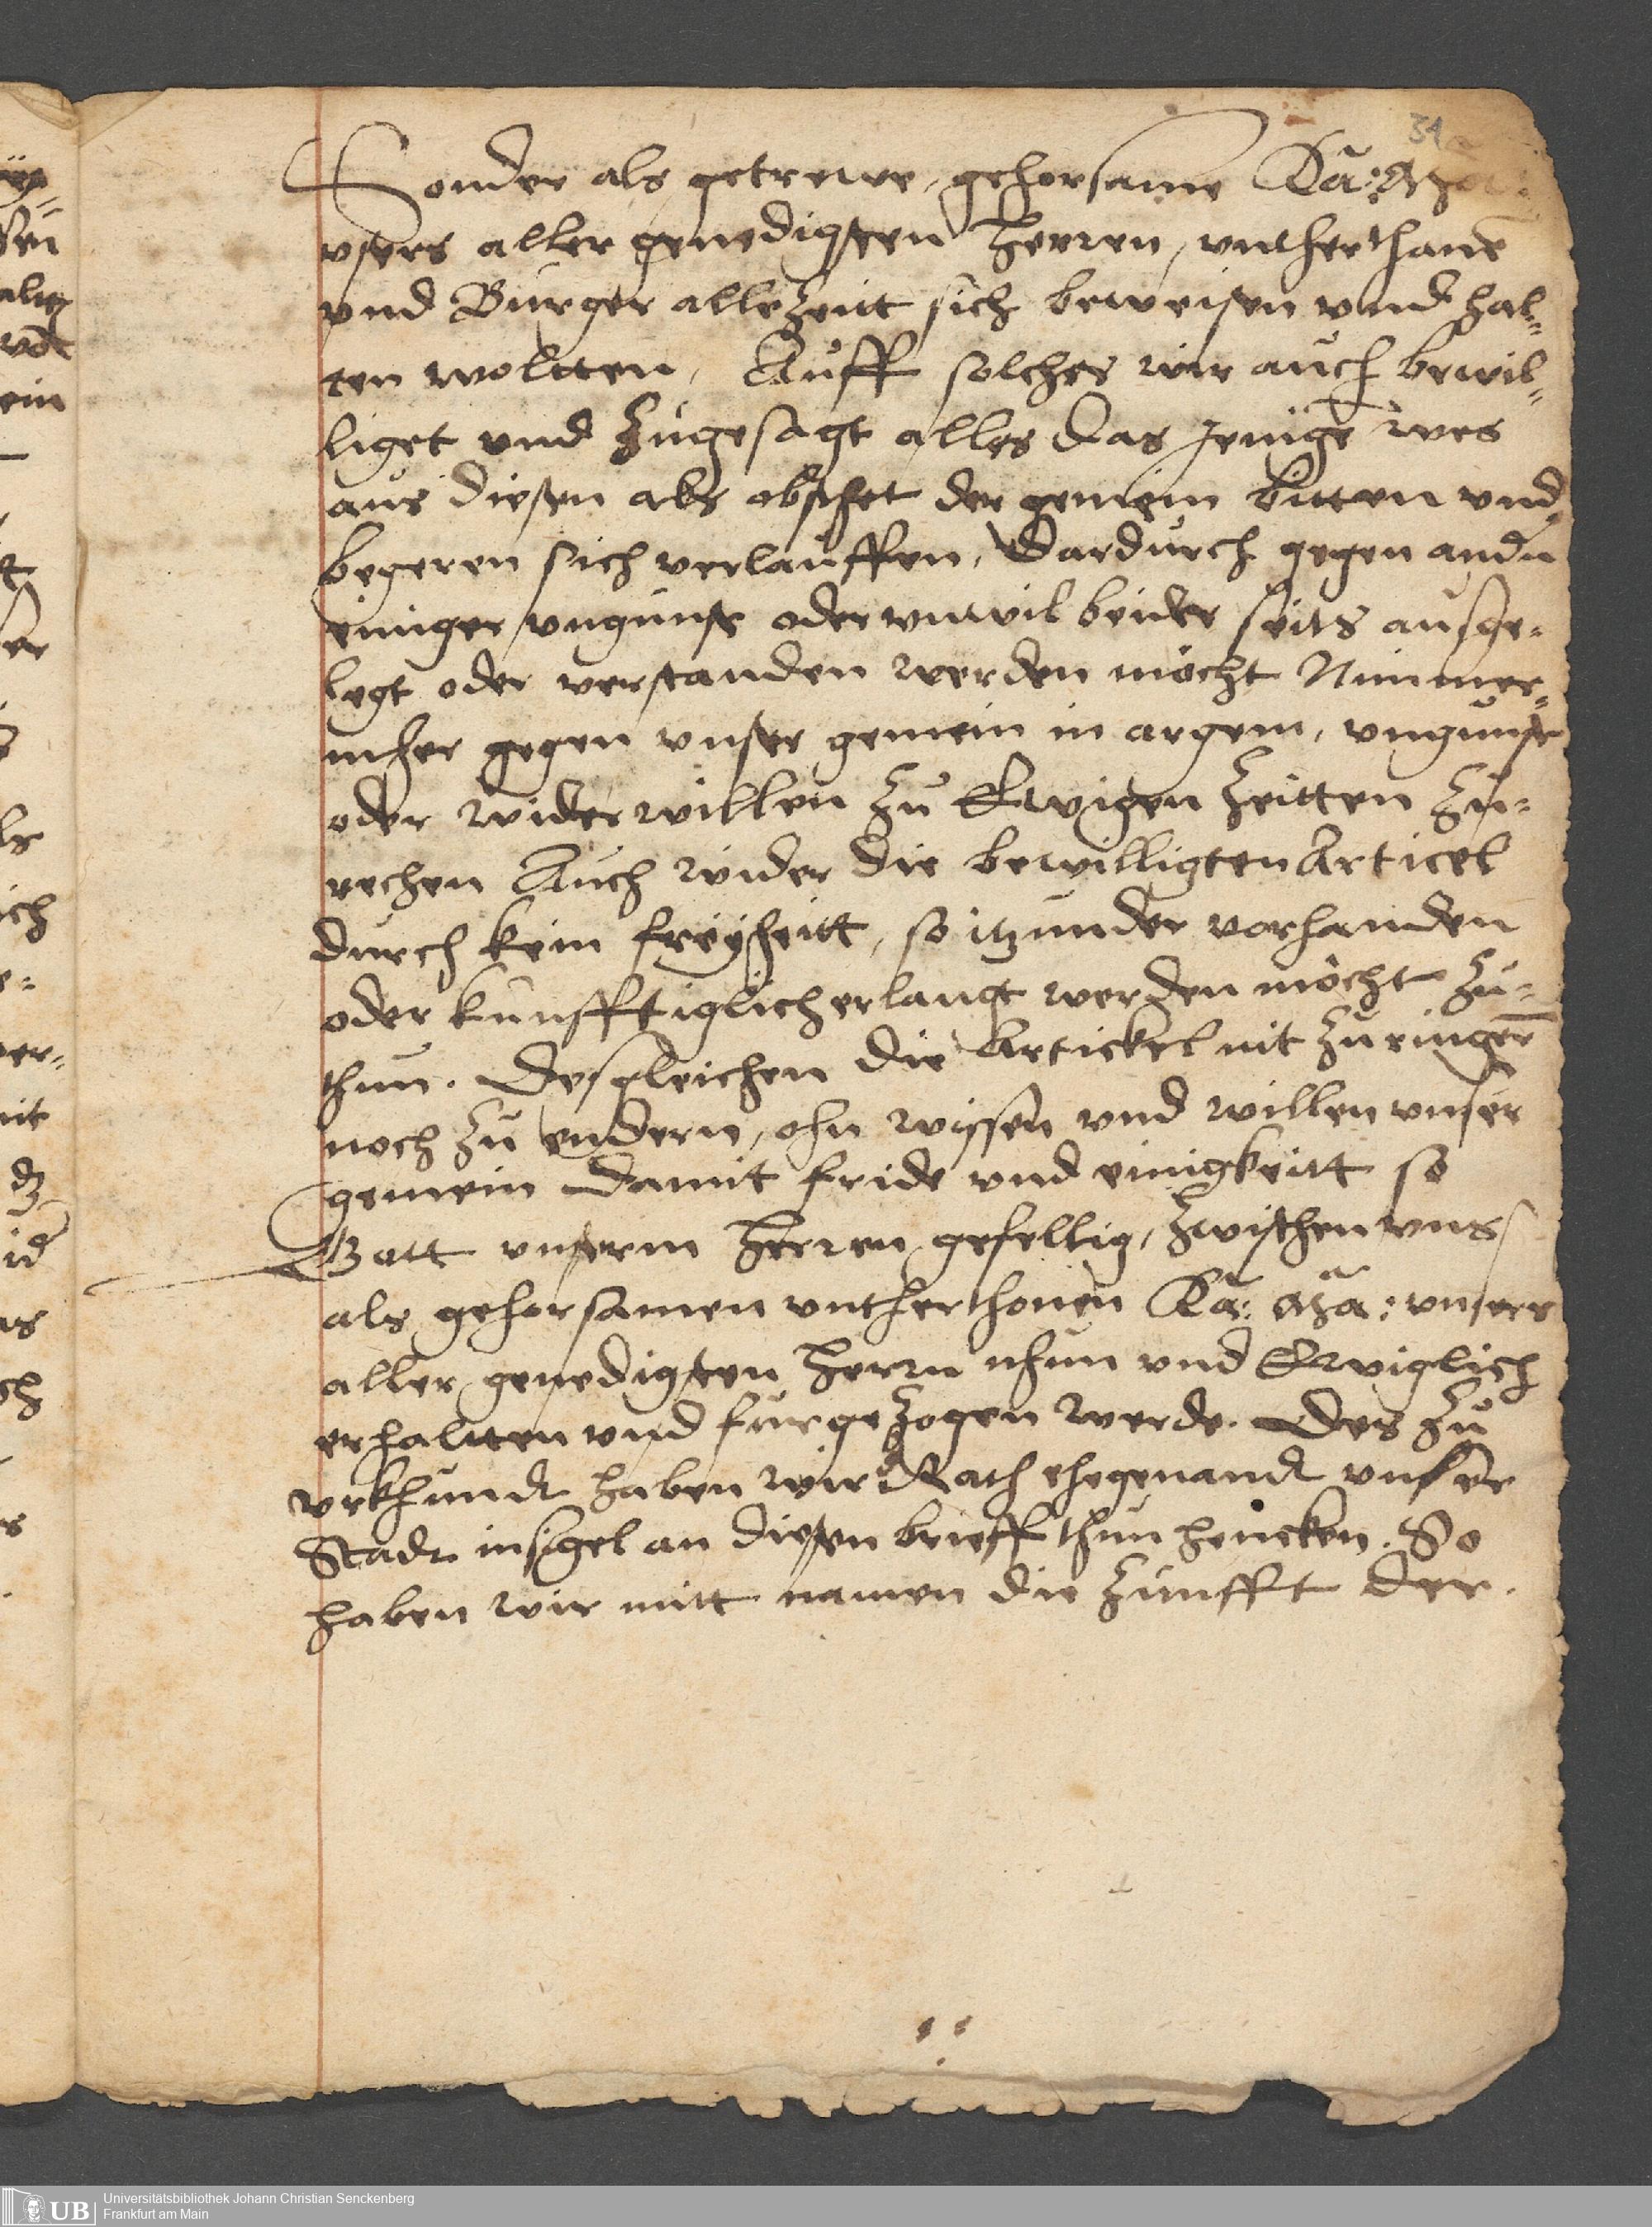 31
Sonder als getrewe, gehorsame Kä: Mä:
vsers aller genedigsten Herren, vntherthane
vnd Burger allezeitt sich beweisen vnnd hal-
ten woltten, Auff solches wir auch bewil-
liget vnd zugesagt alles das jenige wes
aus diesen als obsthet der gemein bitten vnd
begeren sich verlauffen, Dardurch gegen andn
einiger vngunst oder vnwil beider seits ausge-
legt oder verstanden werden möcht Nimmer-
mher gegen vnser gemein in argem, vngunst
oder widerwillen zu Ewigen Zeitten zu-
rechen Auch wider die bewilligten Articel
durch kein freyheitt, so itzunder vorhanden
oder kunfftiglich erlangt werden möcht zu-
thun. Desgleichen die Artickel nit zu ringern
noch zu endern, ohn wyssen vnd willen vnser
gemein damit fride vnd einigkeitt so
Gott vnserm Herren gefellig, zwischen vns
als gehorsamen vntherthonen Kä: Mä: vnsers
aller genedigsten Herrn nhun vnd Ewiglich
erhaltten vnd furgezogen werde. Des zu
vrkhundt haben wir Rath ehegenandt vnser
Stadt insigel an diesen brieff thun hencken. So
haben wir mitt namen die zunfft der.
UB
Universitätsbibliothek Johann Christian Senckenberg
Frankfurt am Main